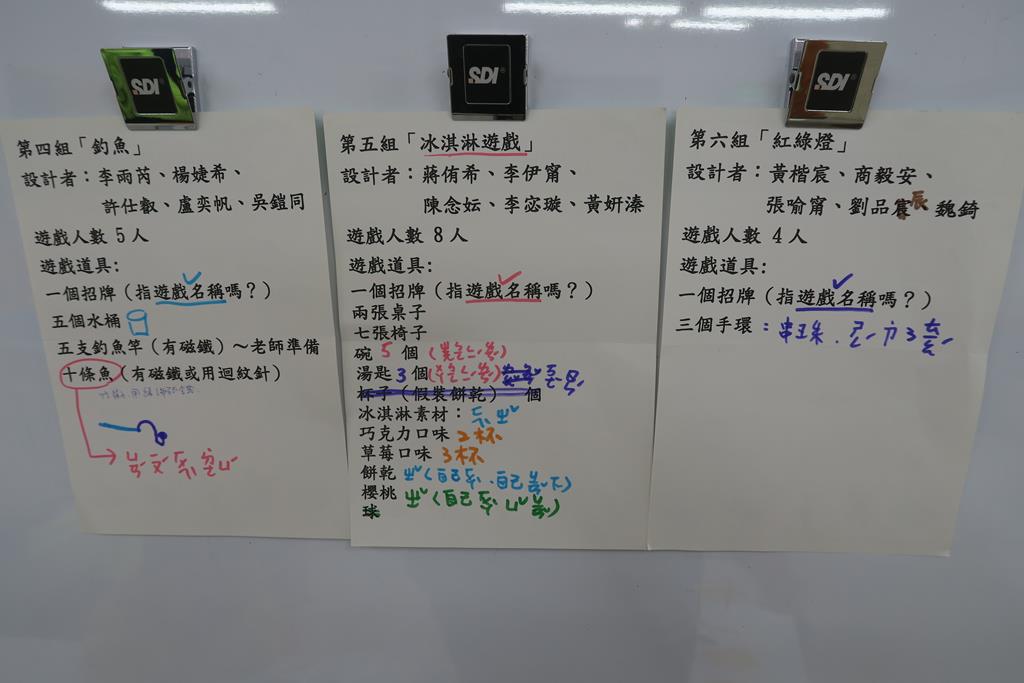 SDI
第四組「釣魚」
設計者：李雨芮、楊婕希、
許仕叡、盧奕帆、吳鎧同
遊戲人數 5 人
遊戲道具:
一個招牌（指遊戲名稱嗎？）
五個水桶
五支釣魚竿（有磁鐵）～老師準備
十條魚（有磁鐵或用迴紋針）
SDI
第五組「冰淇淋遊戲」
設計者：蔣侑希、李伊甯、
陳念妘、李宓璇、黃妍溱
遊戲人數 8 人
遊戲道具:
一個招牌（指遊戲名稱嗎？）
兩張桌子
七張椅子
碗 5 個
湯匙 3 個
杯子（假裝餅乾） 個
冰淇淋素材：
巧克力口味 2杯
草莓口味 3杯
餅乾
櫻桃
球
SDI
第六組「紅綠燈」
設計者：黃楷宸、商毅安、
張喻甯、劉品宸 魏錡
遊戲人數 4 人
遊戲道具:
一個招牌（指遊戲名稱嗎？）
三個手環：串珠